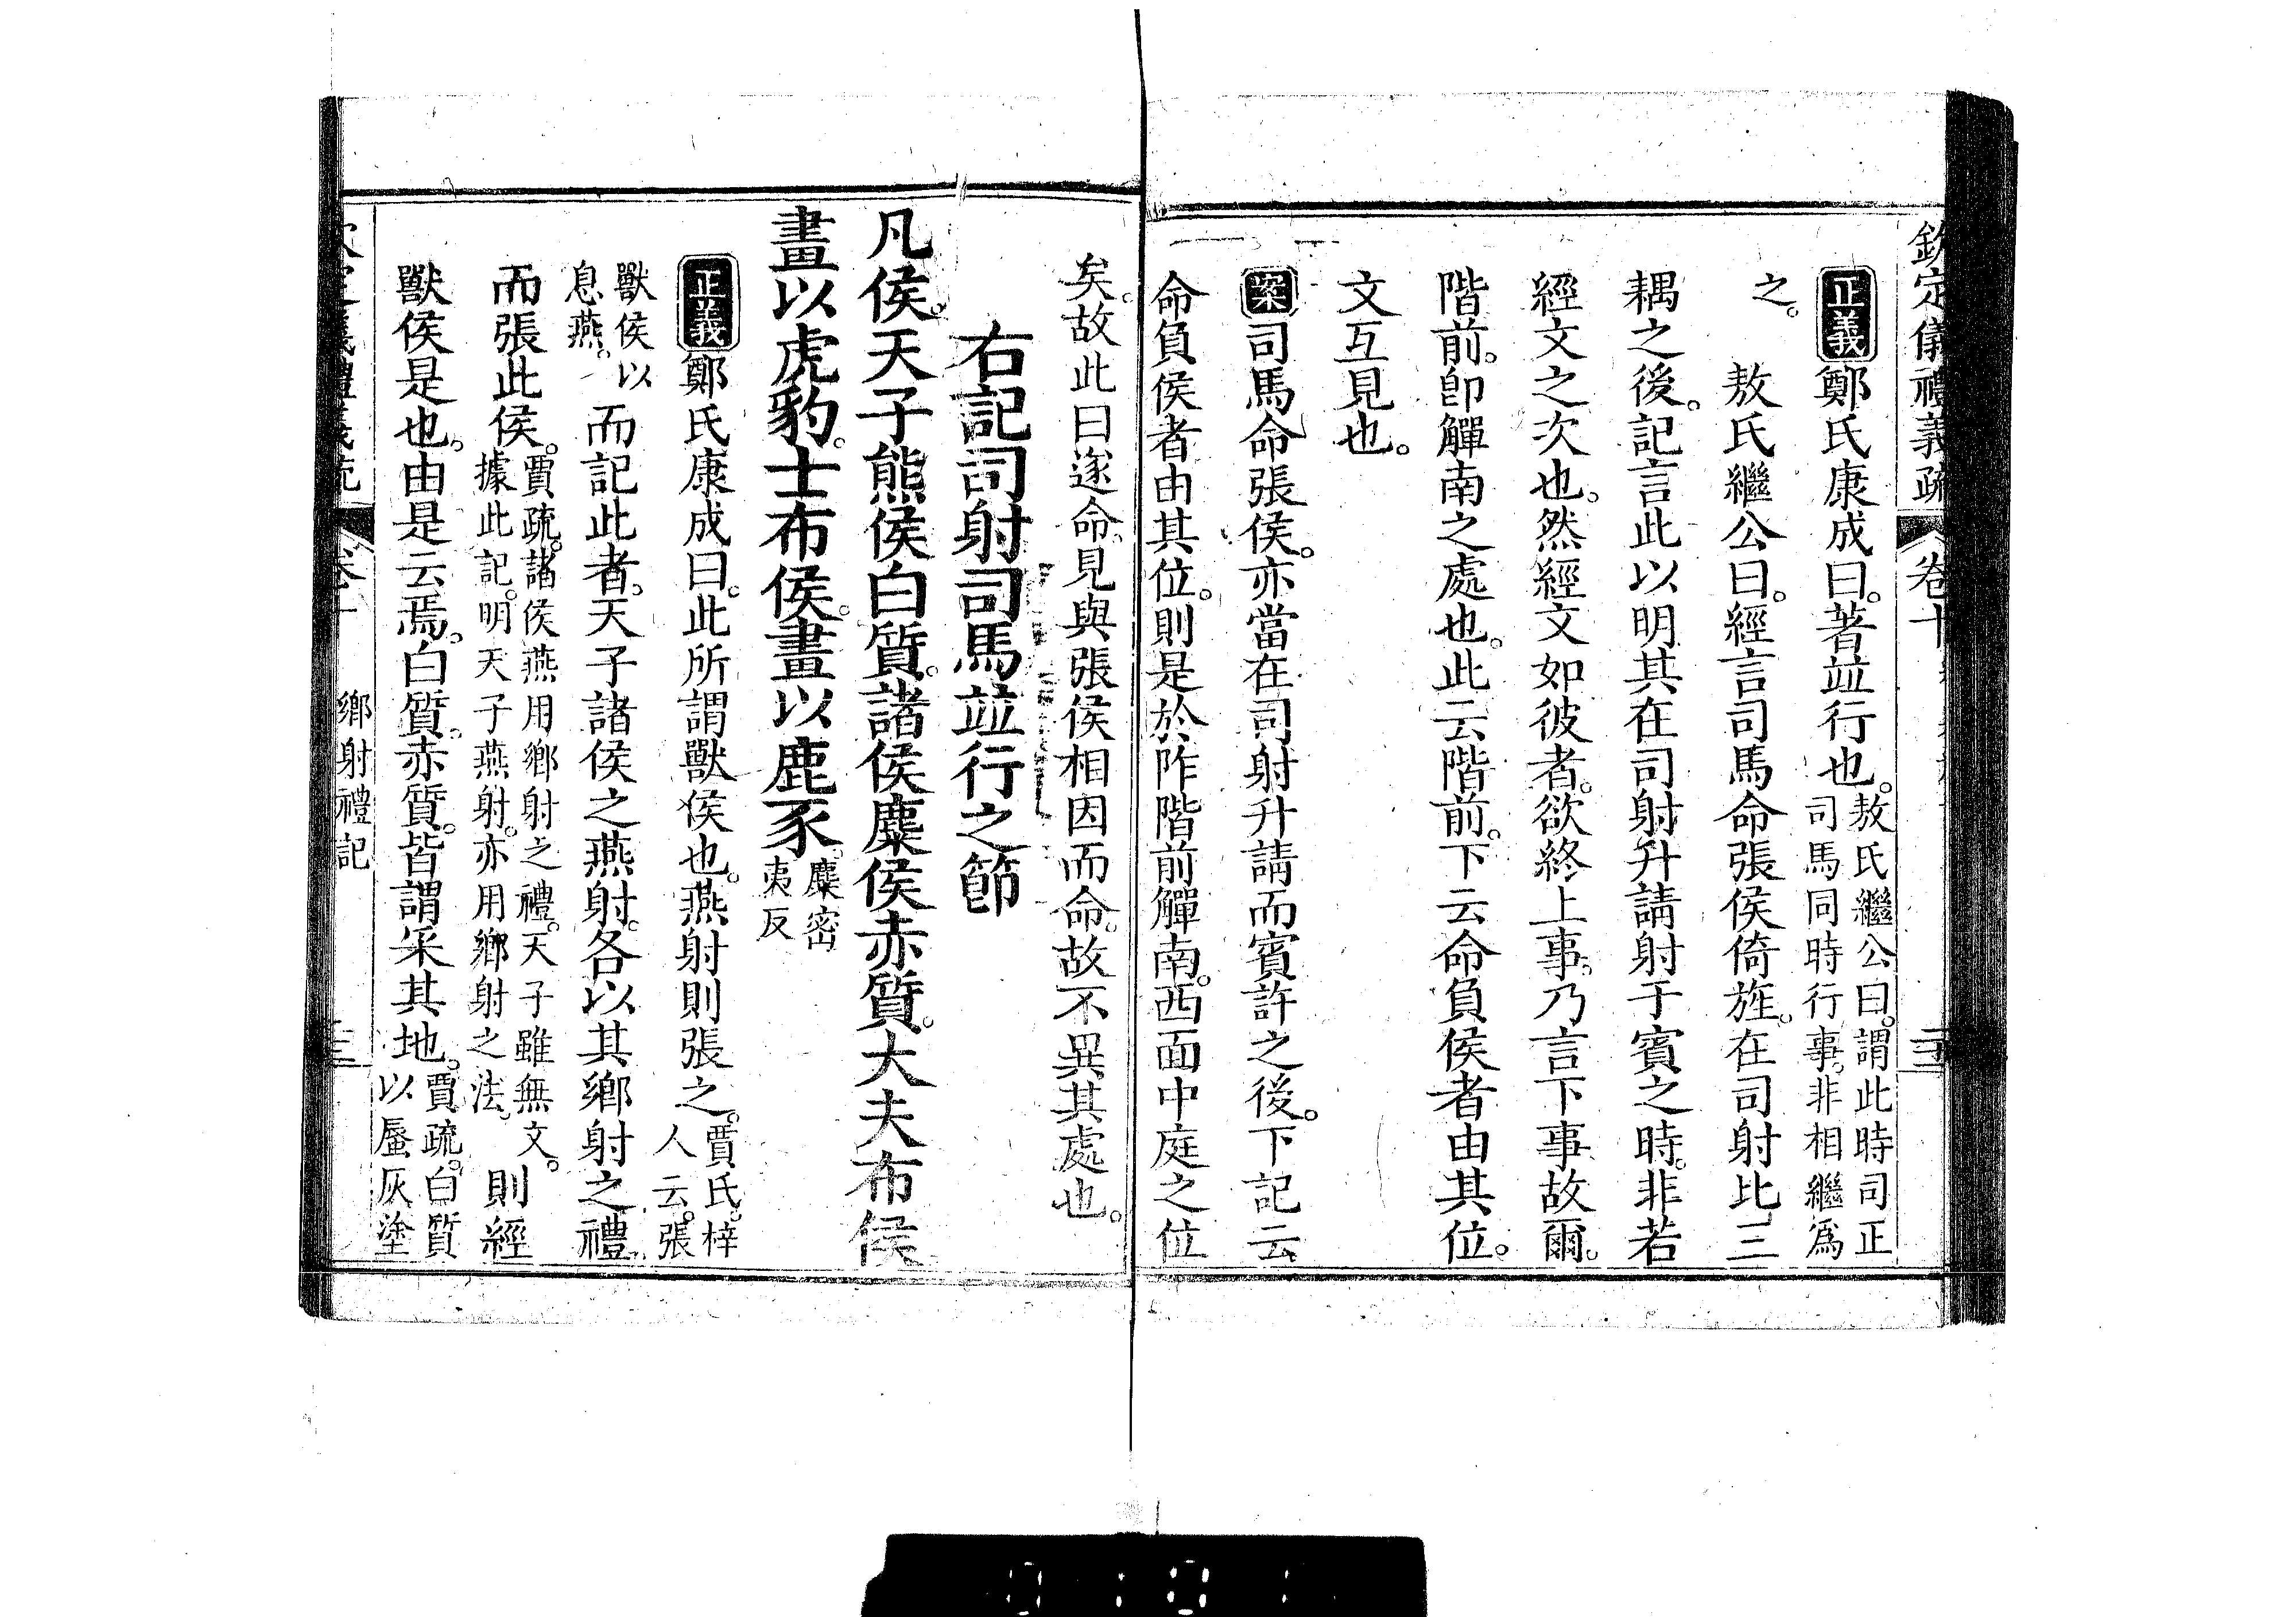 欽定儀禮義疏　卷十
正義鄭氏康成曰。著竝行也。敖氏繼公曰。謂此時司正司馬同時行事。非相繼爲
之。　敖氏繼公曰。經言司馬命張侯倚旌。在司射比三
耦之後。記言此以明其在司射升請射于賓之時。非若
經文之次也。然經文如彼者。欲終上事。乃言下事故爾。
階前。卽觶南之處也。此云階前。下云命負侯者由其位。
文互見也。
案司馬命張侯。亦當在司射升請而賓許之後。下記云
命負侯者由其位。則是於阼階前觶南。西面中庭之位
矣。故此曰遂命。見與張侯相因而命。故不異其處也。
右記司射司馬竝行之節
凡侯。天子熊侯白質。諸侯麋侯赤質。大夫布侯
畫以虎豹。士布侯。畫以鹿豕。麋密夷反
正義鄭氏康成曰。此所謂獸侯也。燕射則張之。賈氏。梓人云。張
獸侯以息燕。而記此者。天子諸侯之燕射。各以其鄉射之禮
而張此侯。賈疏。諸侯燕用鄉射之禮。天子雖無文。據此記。明天子燕射。亦用鄉射之法。則經
獸侯是也。由是云焉。白質。赤質。皆謂采其地。賈疏。白質以蜃灰塗
鄉射禮記